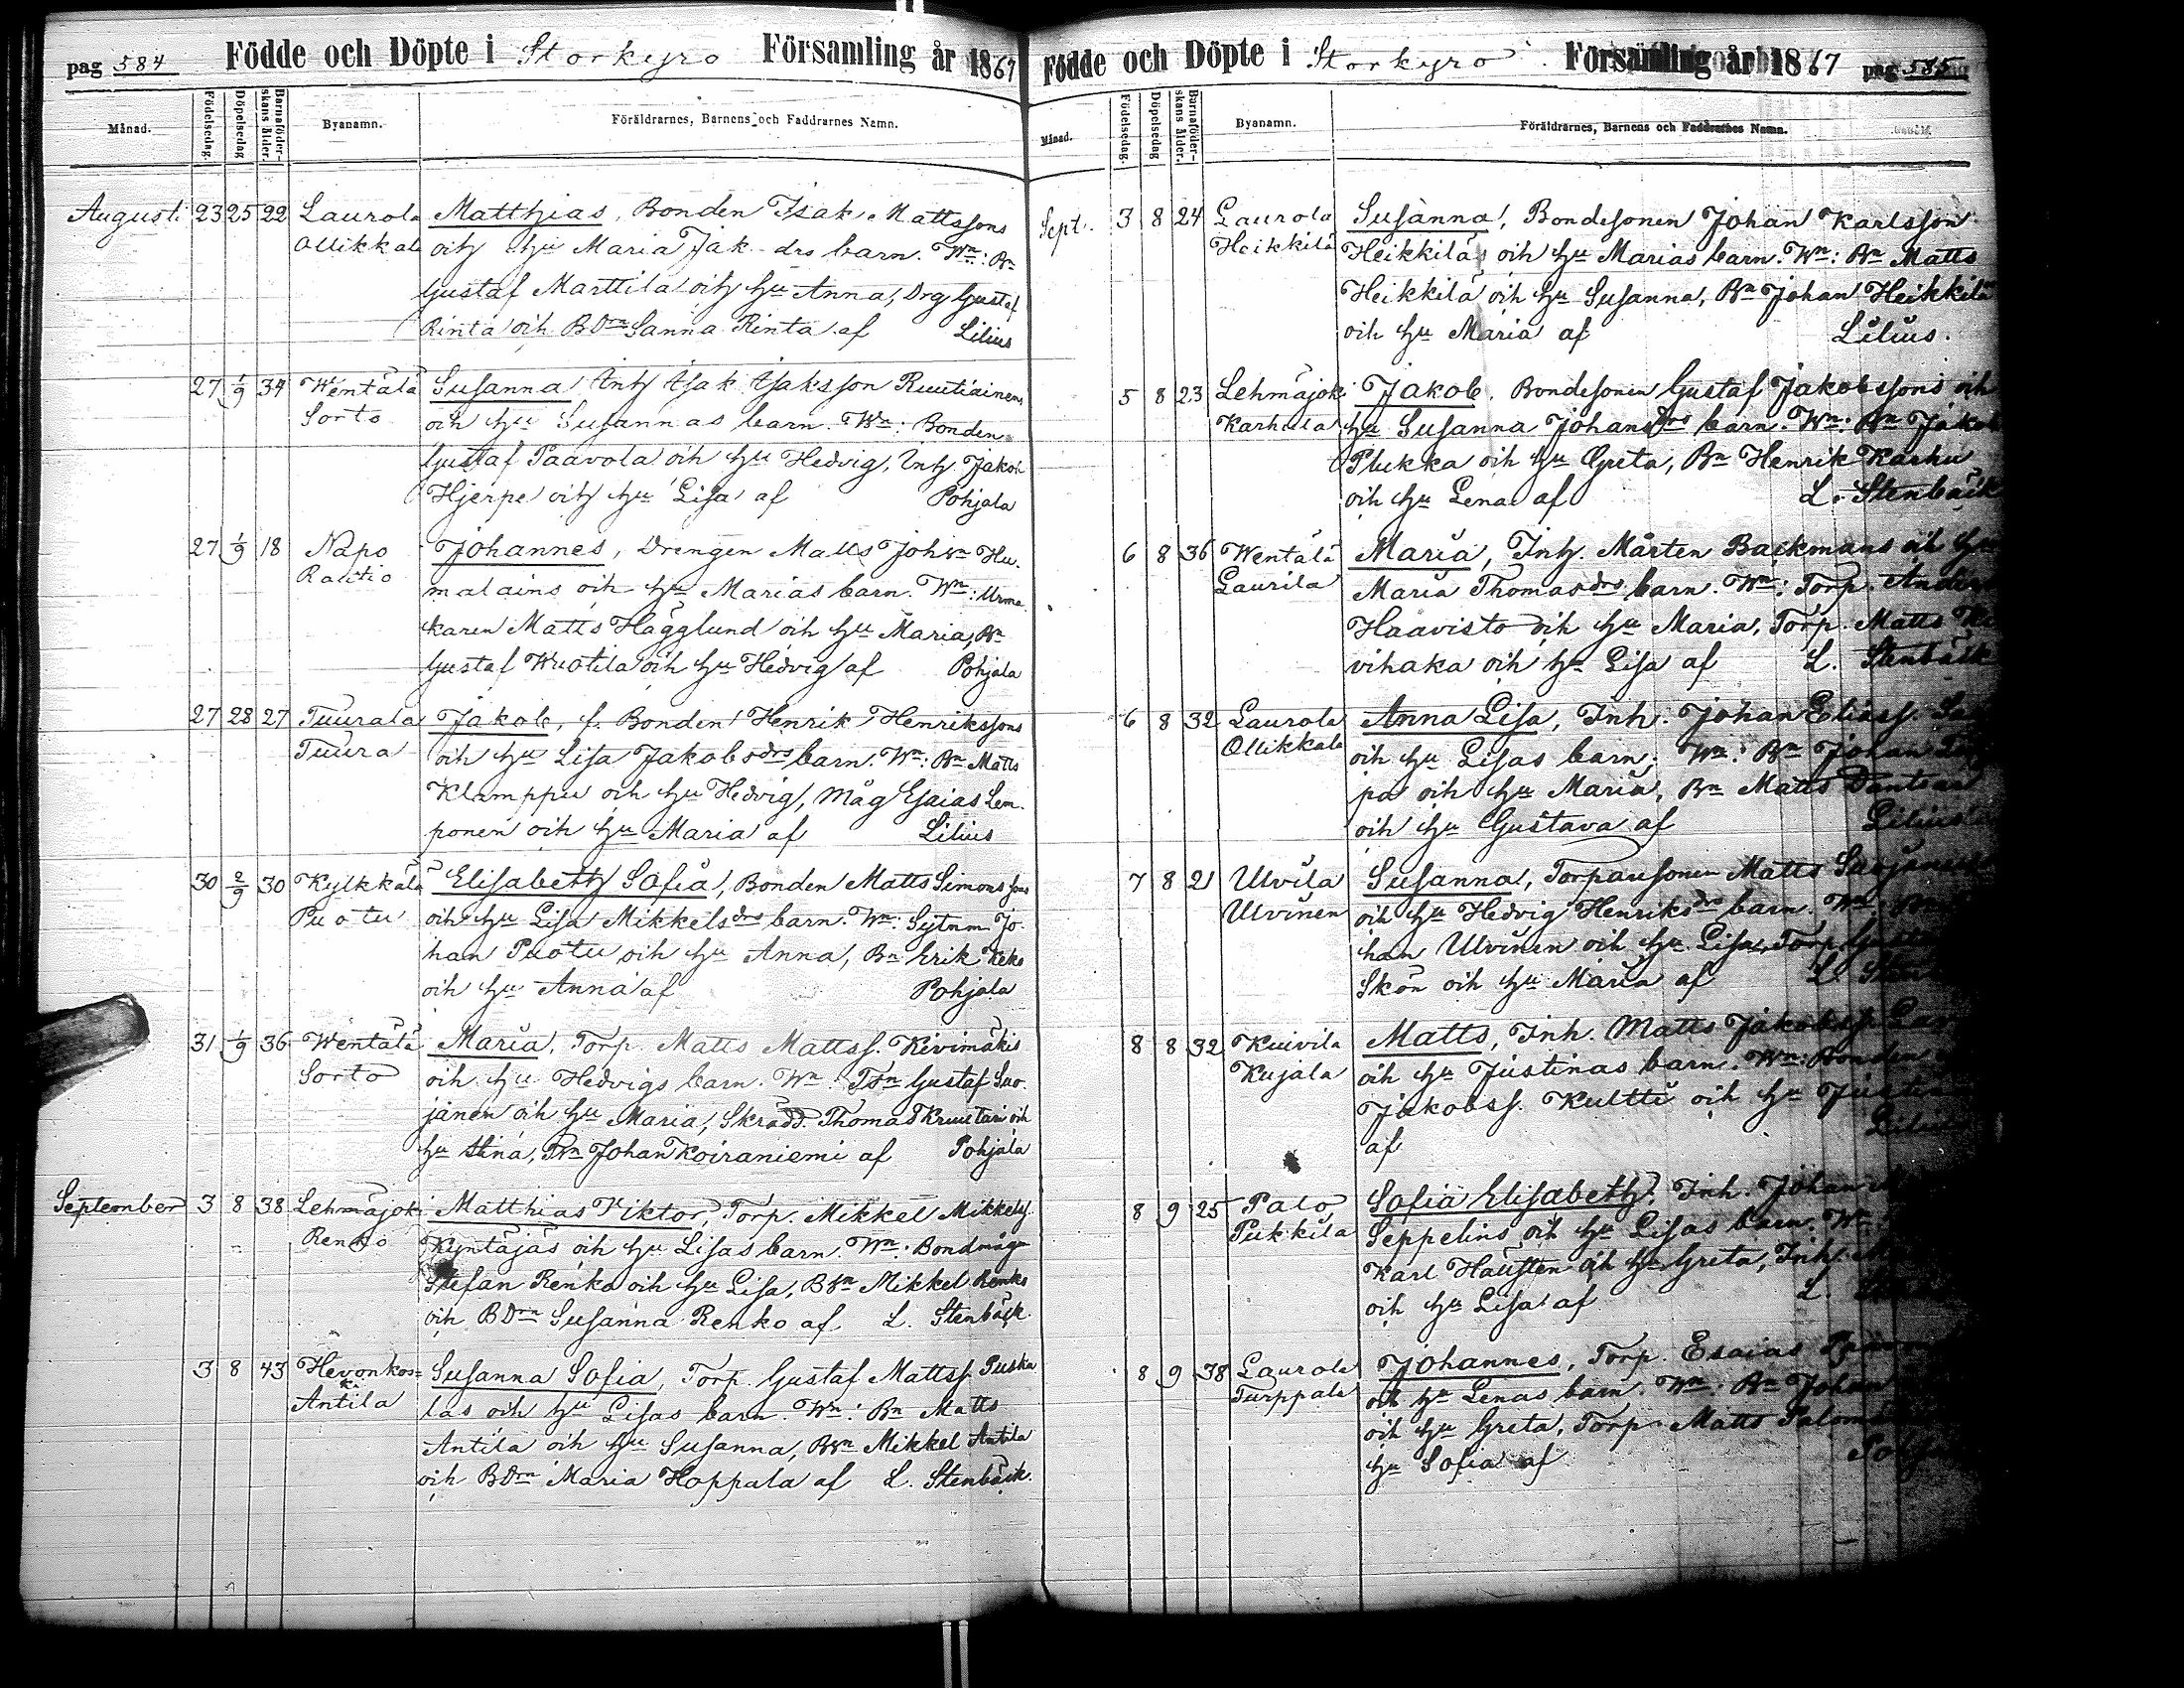 pag 584 Födde och Döpte i Storkyro Församling år 1867
Månad. Födelsedag. Döpelsedag Barnaföderskans ålder. Byanamn. Föräldrarnes, Barnens och Faddrarnes Namn.
Augusti 23 25 22 Laurola Matthias, Bonden Isak Mattssons
Ollikkala och hu Maria Jak drs barn. Wn: Bn
Gustaf Marttila och hu Anna, Drg Gustaf
Rinta och BDrn Sanna Rinta af Lilius
27 1/9 34 Wentälä Susanna, Inh Isak Isaksson Ruutiainens
Sorto och hu Susannas barn. Wn: Bonden
Gustaf Paavola och hu Hedvig, Inh Jakob
Hjerpe och hu Lisa af Pohjala
27 1/9 18 Napo Johannes, Drengen Matts Johan Hu-
Rautio malains och hu Marias barn. Wn: Urma
karen Matts Hägglund och hu Maria, Bn
Gustaf Wuotila och hu Hedvig af Pohjala
27 28 27 Tuurala Jakob, f. Bonden Henrik Henrikssons
Tuura och hu Lisa Jakobsdrs barn. Wn: Bn Matts
Klamppu och hu Hedvig, Måg Esaias Lem-
ponen och hu Maria af Lilius
30 2/9 30 Kylkkälä Elisabeth Sofia, Bonden Matts Simonssons
Puotu och hu Lisa Mikkelsdrs barn. Wn: Sytnm Jo-
han Puotu och hu Anna, Bn Erik Keko
och hu Anna af Pohjala
31 1/9 36 Wentälä Maria, Torp. Matts Mattss. Kivimäkis
Sorto och hu Hedvigs barn. Wn: Tsn Gustaf Sao-
jänen och hu Maria, Skrädd. Thomas Kruutari och
hu Stina, Bn Johan Koiraniemi af Pohjala
September 3 8 38 Lehmäjoki Matthias Viktor, Torp. Mikkel Mikkelss.
Renko Kyntäjäs och hu Lisas barn. Wn: Bondmågn
Stefan Renko och hu Lisa, BSn Mikkel Renko
och BDrn Susanna Renko af L. Stenbäck
3 8 43 Hevonkos= Susanna Sofia, Torp. Gustaf Mattss. Puska
ki
Antila las och hu Lisas barn. Wn: Bn Matts
Antila och hu Susanna, BSn Mikkel Antila
och BDrn Maria Hoppala af L. Stenbäck.
Födde och Döpte i Storkyro Församling år 1867 pag 585
Månad. Födelsedag. Döpelsedag Barnaföderskans ålder. Byanamn. Föräldrarnes, Barnens och Faddrarnes Namn.
Sept. 3 8 24 Laurola Susanna, Bondesonen Johan Karlsson
Heikkilä Heikkiläs och hu Marias barn. Wn: Bn Matts
Heikkilä och hu Susanna, Bn Johan Heikkilä
och hu Maria af Lilius.
5 8 23 Lehmäjoki Jakob, Bondesonen Gustaf Jakobssons och
Karhula hu Susanna Johansdrs barn. Wn: Bn Jakob
Plukka och hu Greta, Bn Henrik Karhu
och hu Lena af L. Stenbäck
6 8 36 Wentälä Maria, Inh. Mårten Backmans och hu
Laurila Maria Thomasdrs barn. Wn: Torp.
Haavisto och hu Maria, Torp. Matts
vihaka och hu Lisa af L. Stenbäck
6 8 32 Laurola Anna Lisa, Inh. Johan Eliass.
Ollikkala och hu Lisas barn. Wn: Bn Johan
pa och hu Maria, Bn Matts
och hu Gustava af Lilius
7 8 21 Ulvila Susanna, Torparesonen Matts
Ulvinen och hu Hedvig Henriksdrs barn. Wn:
han Ulvinen och hu Lisa, Torp.
Skön och hu Maria af L.
8 8 32 Kuivila Matts, Inh. Matts Jakobss.
Kujala och hu Justinas barn. Wn: Bonden
Jakobss. Kultti och hu
af Lilius
8 9 25 Palo Sofia Elisabeth, Inh. Johan
Pukkila Seppelins och hu Lisas barn. Wn:
Karl Hausten och hu Greta, Inh.
och hu Lisa af L.
8 9 38 Laurola Johannes, Torp. Esaias
Turppala och hu Lenas barn. Wn: Bn Johan
och hu Greta, Torp. Matts
hu Sofia af